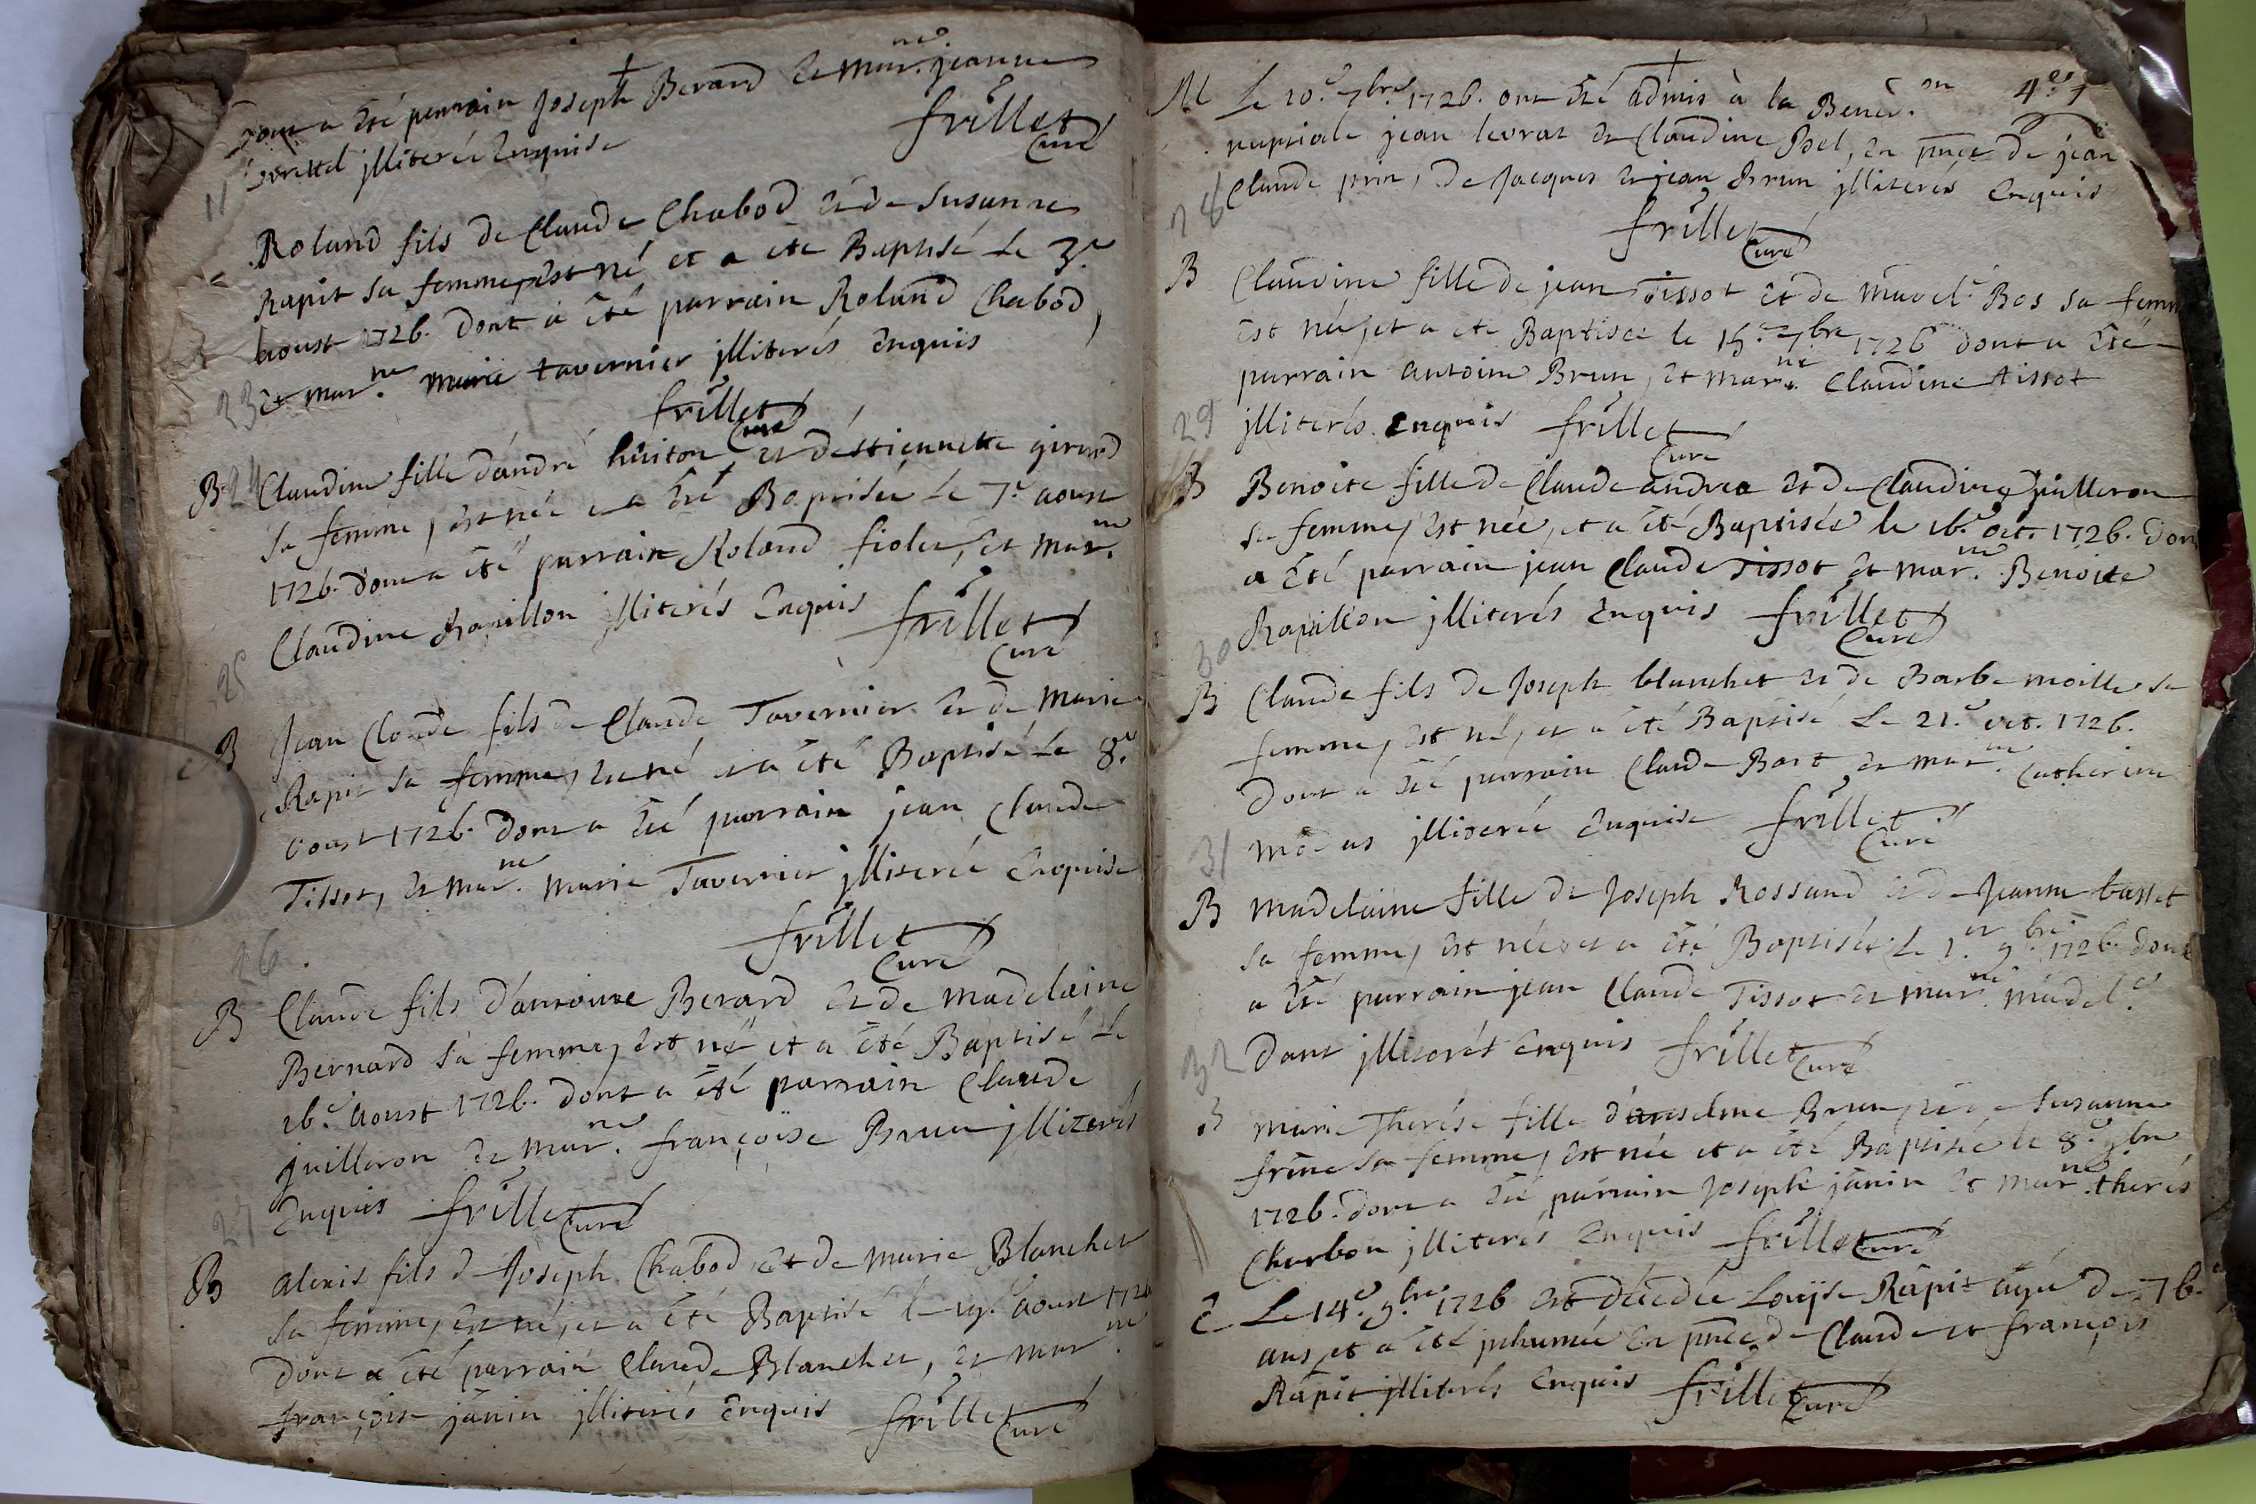 dont a été parrain Joseph Berard et mar.ne jeanne
illiterée enquise
frillet
Curé
Roland fils de Claude Chabod et de Susanne
Rapit sa femme, est né et a été Baptisé le 3.e
aoust 1726. dont a été parrain Roland Chabod,
23 et mar.ne marie tavernier illiterés enquis
frillet
Curé
B 24 Claudine fille d'andré huiton et d'éstiennette girard
sa femme, est née et a été Baptisée le 7.e aoust
1726. dont a été parrain Roland fiolet, et mar.ne
Claudine Rapillon illiterés enquis frillet
Curé
25
B Jean Claude fils de Claude Tavernier et de Marie
Rapit sa femme, est né et a été Baptisé le 8.e
aoust 1726. dont a été parrain jean Claude
Tissot, et mar.ne marie Tavernier illiterée enquise
frillet
Curé
26
B Claude fils d'antoine Berard et de madelaine
Bernard sa femme, est né et a été Baptisé le
16.e aoust 1726. dont a été parrain Claude
juilleron et mar.ne françoise Brun illiterés
27 enquis frillet Curé
B alexis fils de Joseph Chabod, et de marie Blanchet
sa femme, est né, et a été Baptisé le 19.e aoust 1726
dont a été parrain Claude Blanchet, et mar.ne
françoise janin illiterés enquis frillet
Curé
M Le 10.e 7.bre 1726. ont été admis à la Bened.on 4.e
nuptiale jean levrat et Claudine Bel, en pnce de jean
Claude prin, de Jacques et jean Brun illiterés enquis
28 frillet
Curé
B Claudine fille de jean Tissot et de madel.e Bos sa femme
est née, et a été Baptisée le 15.e 7.bre 1726 dont a été
parrain antoine Brun, et mar.ne Claudine tissot
29 illiterés enquis frillet
Curé
B Benoite fille de Claude andrea et de Claudine juilleron
sa femme, est née, et a été Baptisée le 16.e oct. 1726. dont
a été parrain jean Claude Tissot et mar.ne Benoite
30 Rapillon illiterés enquis frillet
Curé
B Claude fils de Joseph blanchet et de Barbe moille sa
femme, est né, et a été Baptisé le 21.e oct. 1726.
dont a été parrain Claude Bart et mar.ne Catherine
31 illiterée enquise frillet
Curé
B Madelaine fille de Joseph Rossand et de Jeanne basset
sa femme, est née et a été Baptisée le 1.er 9.bre 1726. dont
a été parrain jean Claude Tissot et mar.ne madel.e
32 Dant illiterés enquis frillet Curé
B Marie Therése fille d'anselme Brun, et de Susanne
frêne sa femme, est née et a été Baptisée le 8.e 9bre
1726. dont a été parrain Joseph janin et mar.ne therés
Charbon illiterés enquis frillet Curé
Le 14.e 9.bre 1726 est décédée Louïse Rapit agée de 76.
ans, et a été inhumée en pnce de Claude et françois
Rapit illiterés enquis frillet Curé